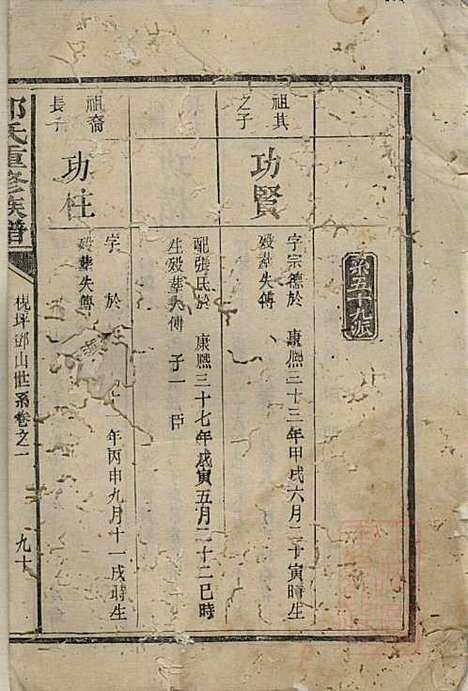 系五十九派
祖其
之子
功賢
字宗德於 康熙三十三年甲戌六月二十寅時生
歿葬失傳
配張氏於 康熙三十七年戊寅五月二十二巳時
生歿葬失傳 子一 臣
祖裔
長子
功柱
字 於 年丙申九月十一戌時生
歿葬失傳
氏重修族譜
坪鄧山世系卷之一
九十